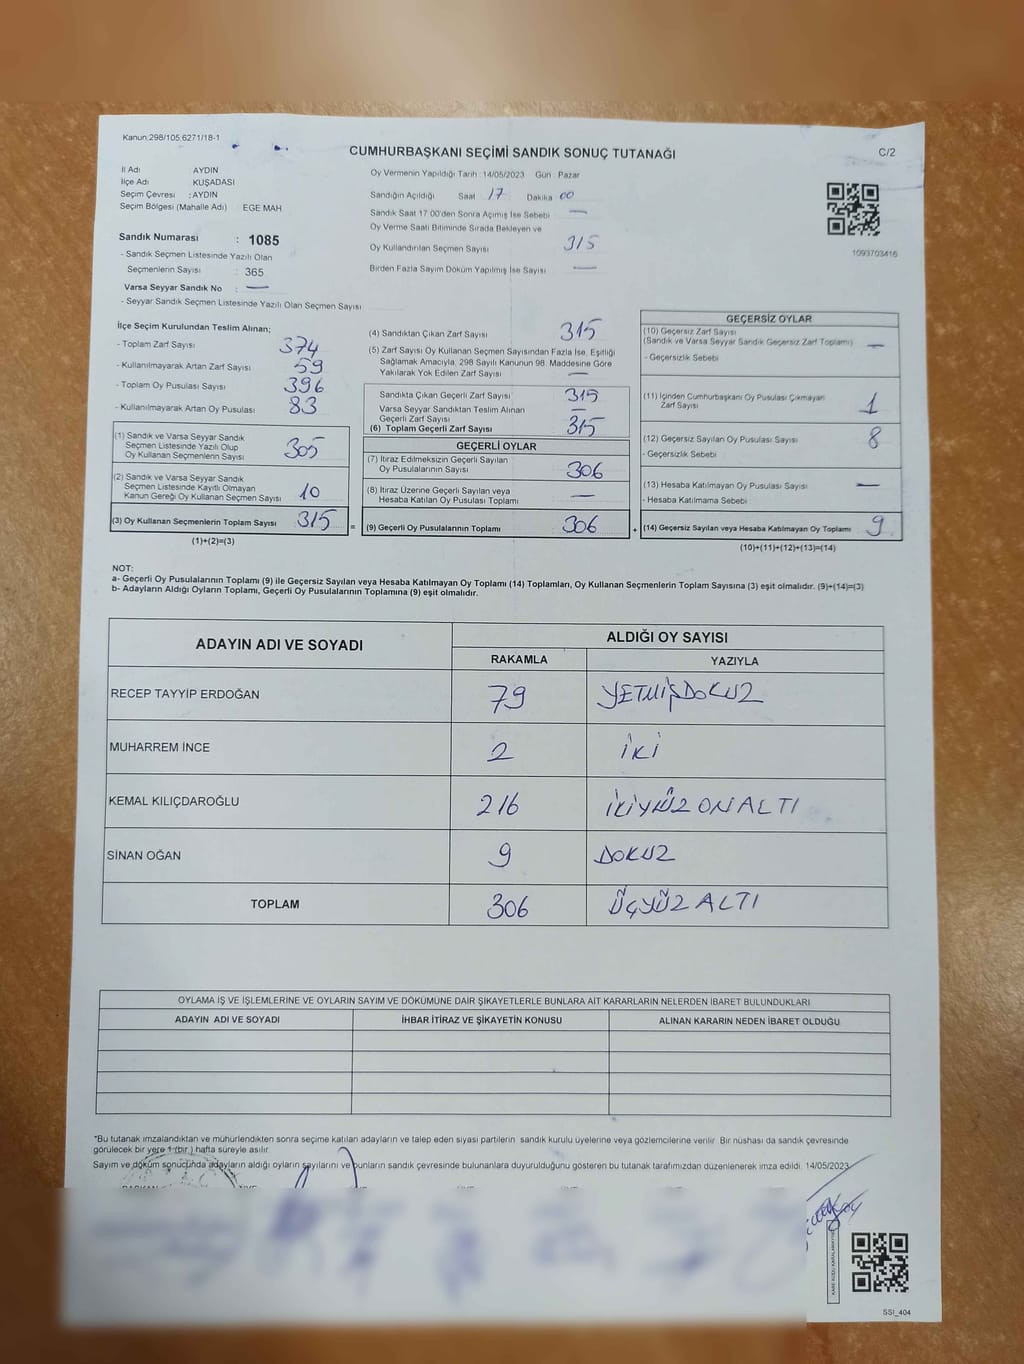 Kanun:298/105 6271/18-1
CUMHURBAŞKANI SEÇİMİ SANDIK SONUÇ TUTANAĞI
C/2
İl Adı AYDIN
İlçe Adı KUŞADASI
Seçim Çevresi : AYDIN
Seçim Bölgesi (Mahalle Adı) EGE MAH.
Sandık Numarası : 1085
- Sandık Seçmen Listesinde Yazılı Olan
Seçmenlerin Sayısı : 365
Varsa Seyyar Sandık No : —
- Seyyar Sandık Seçmen Listesinde Yazılı Olan Seçmen Sayısı
Oy Vermenin Yapıldığı Tarih : 14/05/2023 Gün : Pazar
Sandığın Açıldığı Saat 17 Dakika 00
Sandık Saat 17:00'den Sonra Açılmış İse Sebebi —
Oy Verme Saati Bitiminde Sırada Bekleyen ve
Oy Kullandırılan Seçmen Sayısı 315
Birden Fazla Sayım Döküm Yapılmış İse Sayısı —
1093703416
İlçe Seçim Kurulundan Teslim Alınan;
- Toplam Zarf Sayısı 374
- Kullanılmayarak Artan Zarf Sayısı 59
- Toplam Oy Pusulası Sayısı 396
- Kullanılmayarak Artan Oy Pusulası 83
(1) Sandık ve Varsa Seyyar Sandık
Seçmen Listesinde Yazılı Olup
Oy Kullanan Seçmenlerin Sayısı 305
(2) Sandık ve Varsa Seyyar Sandık
Seçmen Listesinde Kayıtlı Olmayan
Kanun Gereği Oy Kullanan Seçmen Sayısı 10
(3) Oy Kullanan Seçmenlerin Toplam Sayısı 315
(1)+(2)=(3)
=
(4) Sandıktan Çıkan Zarf Sayısı 315
(5) Zarf Sayısı Oy Kullanan Seçmen Sayısından Fazla İse, Eşitliği
Sağlamak Amacıyla, 298 Sayılı Kanunun 98. Maddesine Göre
Yakılarak Yok Edilen Zarf Sayısı —
Sandıkta Çıkan Geçerli Zarf Sayısı 315
Varsa Seyyar Sandıktan Teslim Alınan
Geçerli Zarf Sayısı —
(6) Toplam Geçerli Zarf Sayısı 315
GEÇERLİ OYLAR
(7) İtiraz Edilmeksizin Geçerli Sayılan
Oy Pusulalarının Sayısı 306
(8) İtiraz Üzerine Geçerli Sayılan veya
Hesaba Katılan Oy Pusulası Toplamı —
(9) Geçerli Oy Pusulalarının Toplamı 306
+
GEÇERSİZ OYLAR
(10) Geçersiz Zarf Sayısı
(Sandık ve Varsa Seyyar Sandık Geçersiz Zarf Toplamı) —
- Geçersizlik Sebebi
(11) İçinden Cumhurbaşkanı Oy Pusulası Çıkmayan
Zarf Sayısı 1
(12) Geçersiz Sayılan Oy Pusulası Sayısı 8
- Geçersizlik Sebebi
(13) Hesaba Katılmayan Oy Pusulası Sayısı —
- Hesaba Katılmama Sebebi
(14) Geçersiz Sayılan veya Hesaba Katılmayan Oy Toplamı 9
(10)+(11)+(12)+(13)=(14)
NOT:
a- Geçerli Oy Pusulalarının Toplamı (9) ile Geçersiz Sayılan veya Hesaba Katılmayan Oy Toplamı (14) Toplamları, Oy Kullanan Seçmenlerin Toplam Sayısına (3) eşit olmalıdır. (9)+(14)=(3)
b- Adayların Aldığı Oyların Toplamı, Geçerli Oy Pusulalarının Toplamına (9) eşit olmalıdır.
ADAYIN ADI VE SOYADI
ALDIĞI OY SAYISI
RAKAMLA YAZIYLA
RECEP TAYYİP ERDOĞAN 79 YETMİŞDOKUZ
MUHARREM İNCE 2 İKİ
KEMAL KILIÇDAROĞLU 216 İKİYÜZ ONALTI
SİNAN OĞAN 9 DOKUZ
TOPLAM 306 ÜÇYÜZ ALTI
OYLAMA İŞ VE İŞLEMLERİNE VE OYLARIN SAYIM VE DÖKÜMÜNE DAİR ŞİKAYETLERLE BUNLARA AİT KARARLARIN NELERDEN İBARET BULUNDUKLARI
ADAYIN ADI VE SOYADI İHBAR İTİRAZ VE ŞİKAYETİN KONUSU ALINAN KARARIN NEDEN İBARET OLDUĞU
*Bu tutanak imzalandıktan ve mühürlendikten sonra seçime katılan adayların ve talep eden siyasi partilerin sandık kurulu üyelerine veya gözlemcilerine verilir. Bir nüshası da sandık çevresinde
görülecek bir yere 1 (bir ) hafta süreyle asılır.
Sayım ve döküm sonucunda adayların aldığı oyların sayılarını ve bunların sandık çevresinde bulunanlara duyurulduğunu gösteren bu tutanak tarafımızdan düzenlenerek imza edildi. 14/05/2023
SSI_404